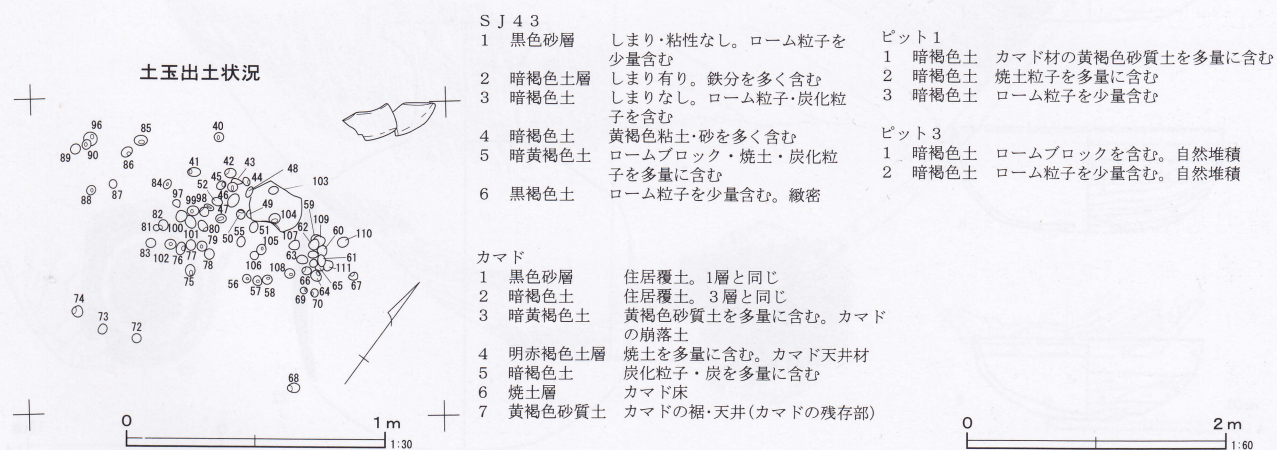 土玉出土状況
96
85
40
89
90
86
41
42
43
48
45
44
52
103
84
88
87
97
46
59
99
98
47
49
104
109
82
62
60
81
100
107
110
101
80
50
55
51
105
83
102
79
63
61
76
77
78
106
108
66
111
75
56
57
58
65
67
69
64
70
74
73
72
68
0 1m
1:30
SJ43
1 黒色砂層 しまり・粘性なし。ローム粒子を
少量含む
2 暗褐色土層 しまり有り。鉄分を多く含む
3 暗褐色土 しまりなし。ローム粒子・炭化粒
子を含む
4 暗褐色土 黄褐色粘土・砂を多く含む
5 暗黄褐色土 ロームブロック・焼土・炭化粒
子を多量に含む
6 黒褐色土 ローム粒子を少量含む。緻密
カマド
1 黒色砂層 住居覆土。1層と同じ
2 暗褐色土 住居覆土。3層と同じ
3 暗黄褐色土 黄褐色砂質土を多量に含む。カマド
の崩落土
4 明赤褐色土層 焼土を多量に含む。カマド天井材
5 暗褐色土 炭化粒子・炭を多量に含む
6 焼土層 カマド床
7 黄褐色砂質土 カマドの裾・天井(カマドの残存部)
ピット1
1 暗褐色土 カマド材の黄褐色砂質土を多量に含む
2 暗褐色土 焼土粒子を多量に含む
3 暗褐色土 ローム粒子を少量含む
ピット3
1 暗褐色土 ロームブロックを含む。自然堆積
2 暗褐色土 ローム粒子を少量含む。自然堆積
0 2m
1:60